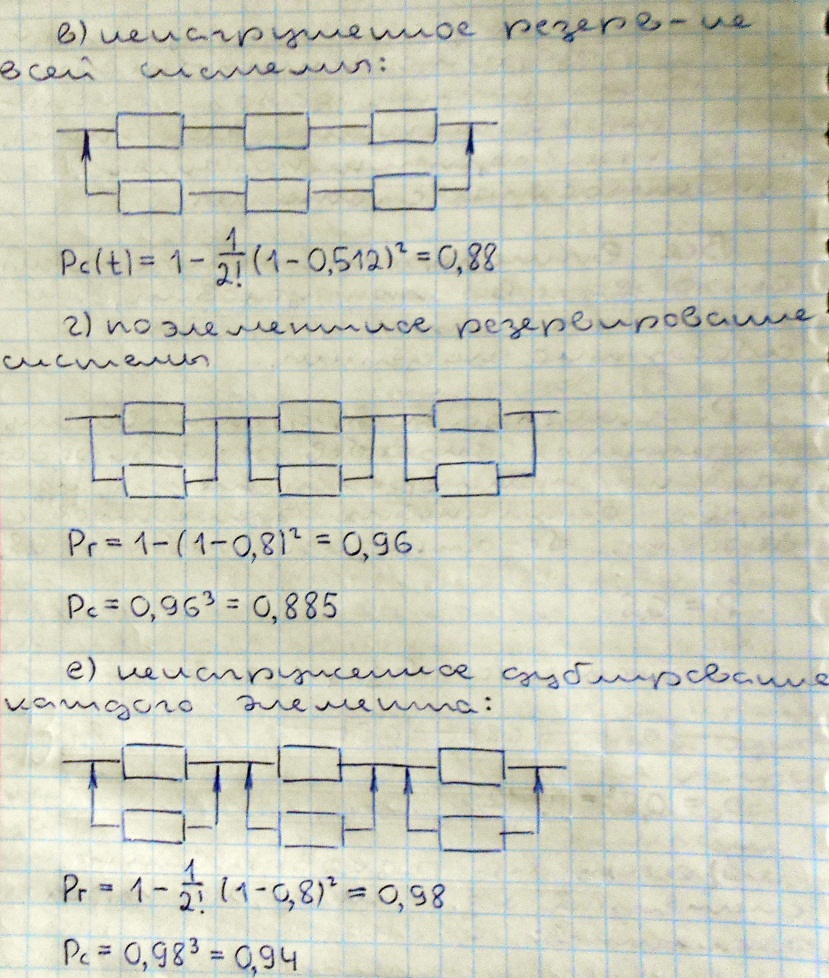 в) ненагруженное резерв-ие
всей системы:
Pc(t) = 1 - 1/2! (1 - 0,512)² = 0,88
г) поэлементное резервирование
системы
Pг = 1 - (1 - 0,8)² = 0,96
Pc = 0,96³ = 0,885
е) ненагруженное дублирование
каждого элемента:
Pг = 1 - 1/2! (1 - 0,8)² = 0,98
Pc = 0,98³ = 0,94